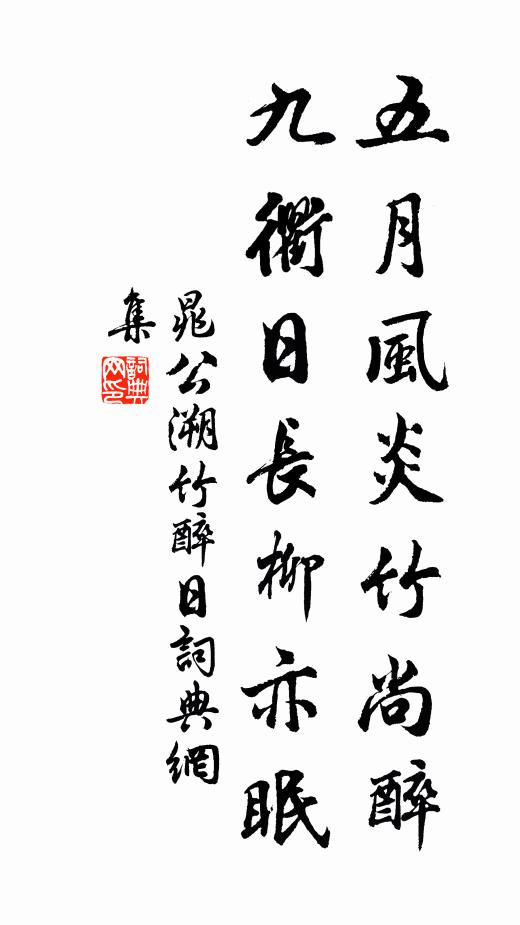 五月風炎竹尚醉
九衢日長柳亦眠
晁公溯竹醉日詞典網
集
詞典
网印